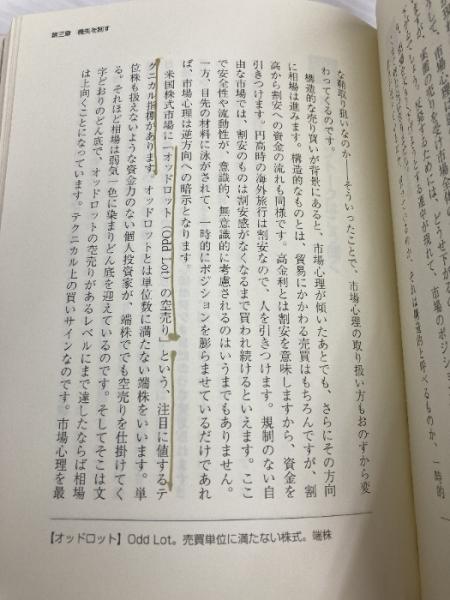 第三章 機先を制す
な類取り扱いなのか——そういったことで、市場心理の取り扱い方もおのずから変
わってくるのです。
構造的な売り買いが背景にあると、市場心理が傾いたあとでも、さらにその方向
に相場は進みます。構造的なものとは、貿易にかかわる売買はもちろんですが、割
高から割安への資金の流れも同様です。高金利とは割安を意味しますから、資金を
引きつけます。円高時の海外旅行は割安なので、人を引きつけます。規制のない自
由な市場では、割安のものは割安感がなくなるまで買われ続けるといえます。ここ
で安全性や流動性が、意識的、無意識的に考慮されるのはいうまでもありません。
一方、目先の材料に泳がされて、一時的にポジションを膨らませているだけであれ
ば、市場心理は逆方向への暗示となります。
米国株式市場に「オッドロット（Odd Lot）の空売り」という、注目に値するテ
クニカル指標があります。オッドロットとは単位数に満たない端株をいいます。単
位株も扱えないような資金力のない個人投資家が、端株ででも空売りを仕掛けてく
る。それほど相場は弱気一色に染まりどん底を迎えているのです。そしてそこは文
字どおりのどん底で、オッドロットの空売りがあるレベルにまで達したならば相場
は上向くことになっています。テクニカル上の買いサインなのです。市場心理を最
【オッドロット】Odd Lot。売買単位に満たない株式。端株